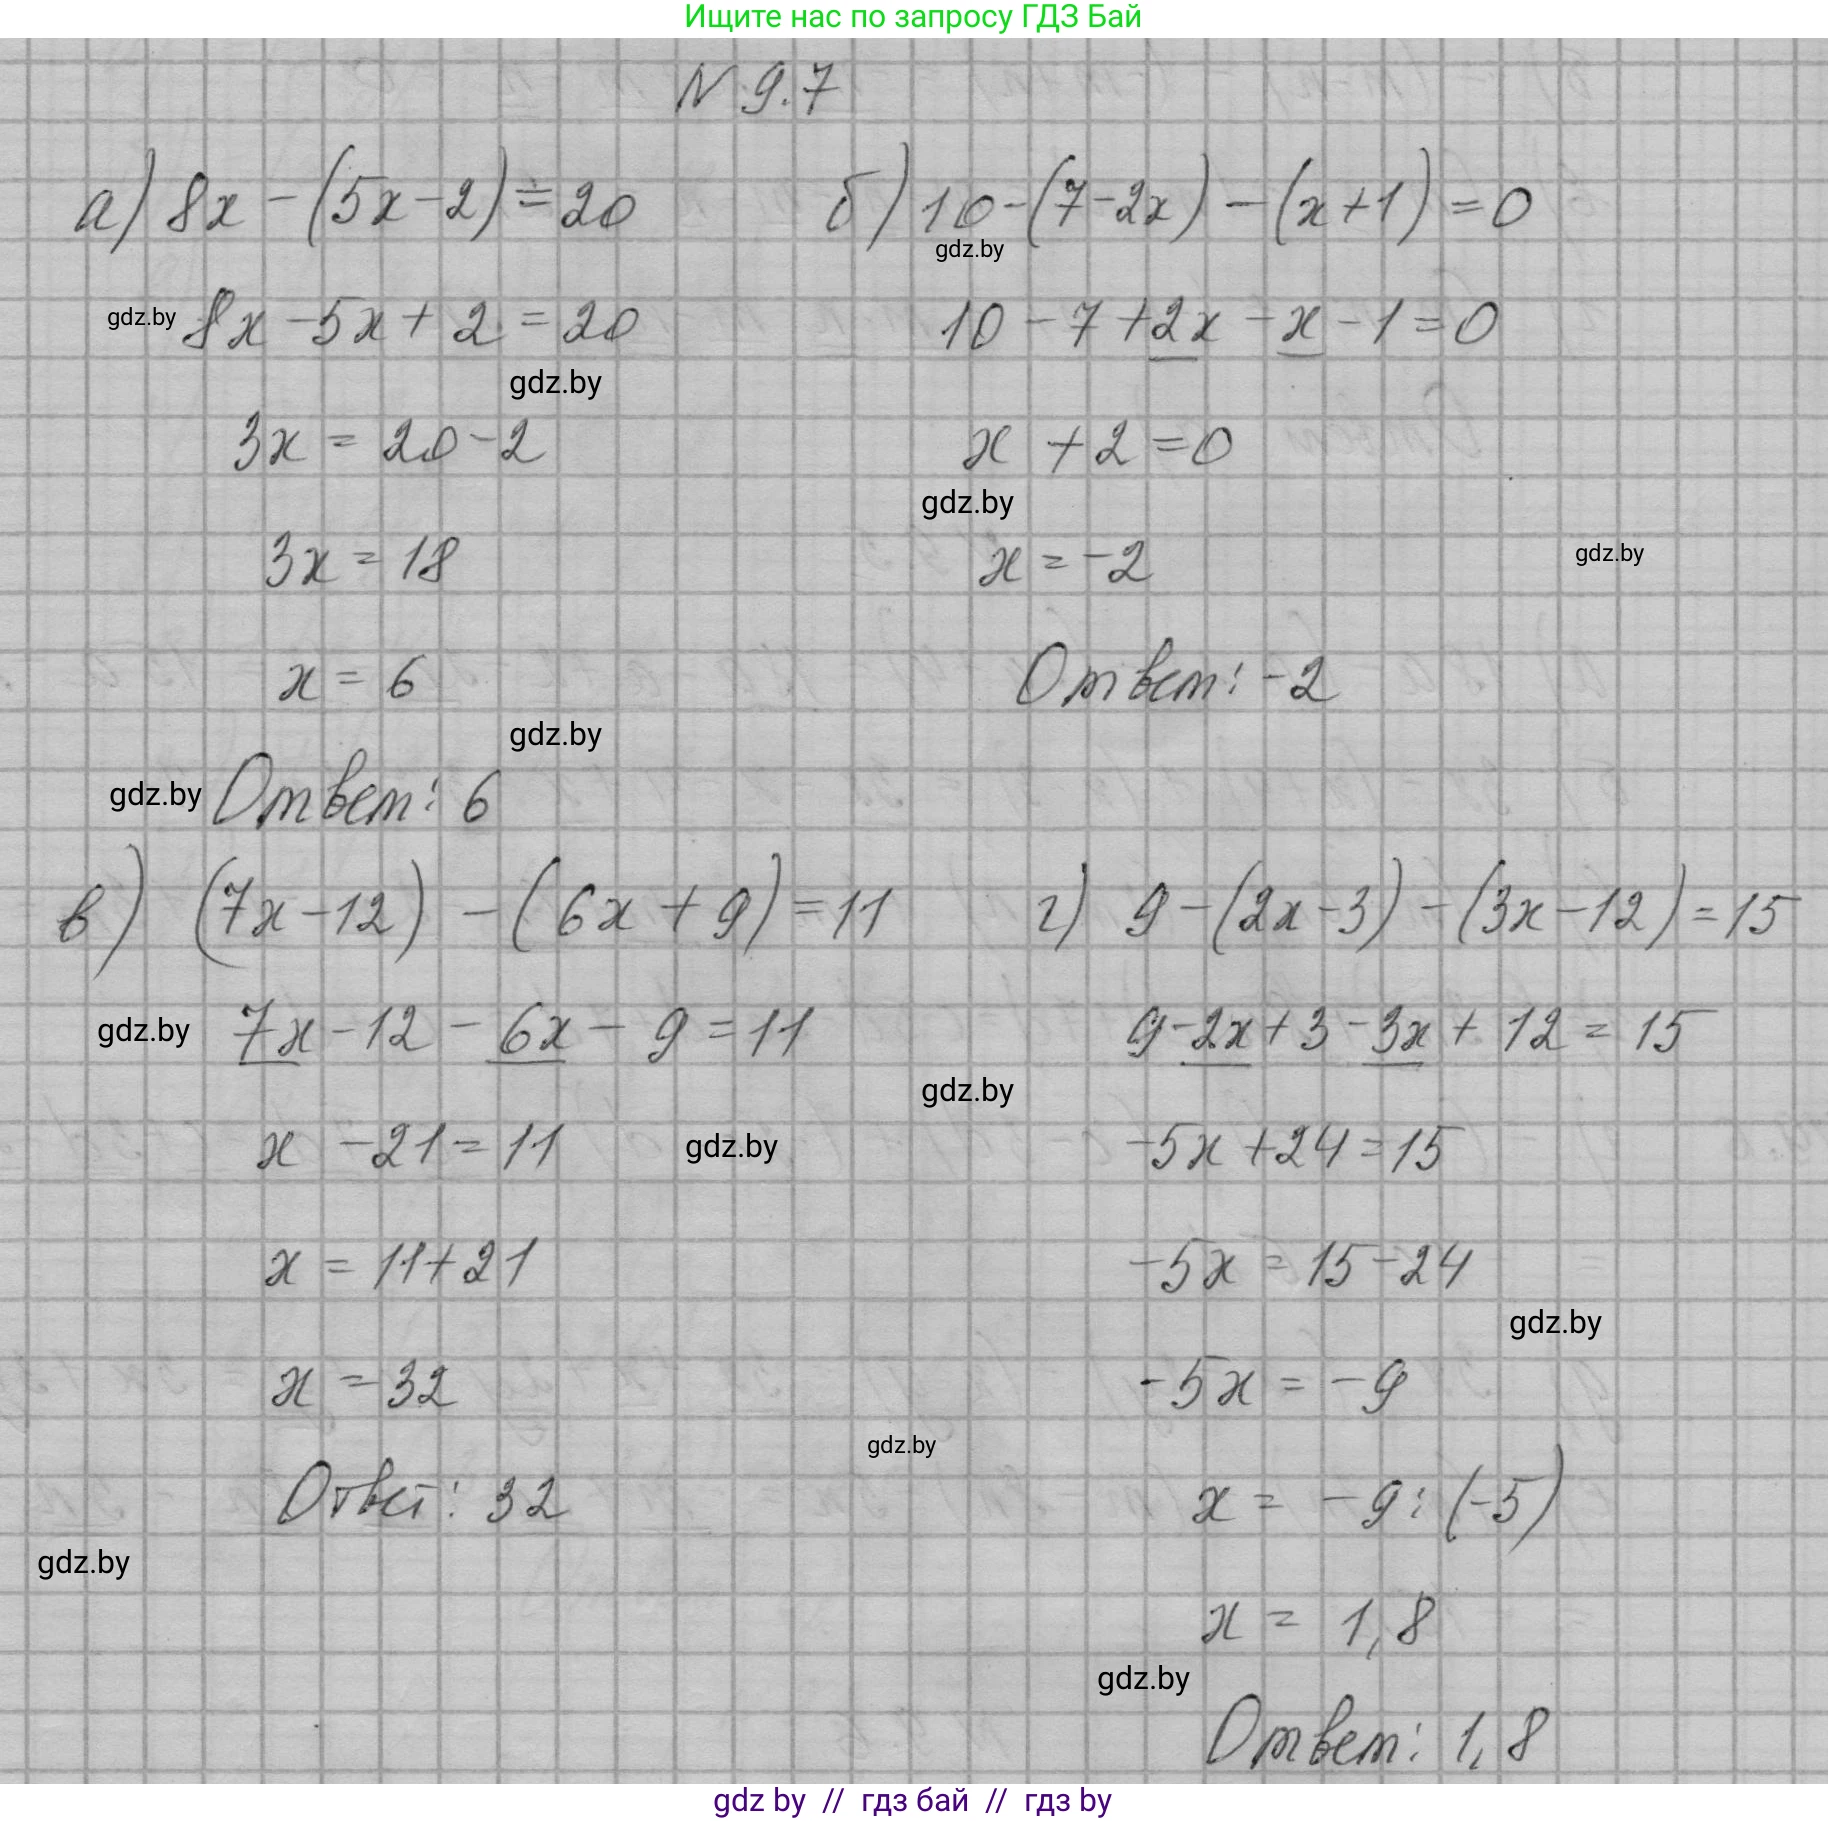 Ищите нас по запросу ГДЗ Бай
N 9.7
а) 8x - (5x - 2) = 20
8x - 5x + 2 = 20
3x = 20 - 2
3x = 18
x = 6
Ответ: 6
б) 10 - (7 - 2x) - (x + 1) = 0
10 - 7 + 2x - x - 1 = 0
x + 2 = 0
x = -2
Ответ: -2
в) (7x - 12) - (6x + 9) = 11
7x - 12 - 6x - 9 = 11
x - 21 = 11
x = 11 + 21
x = 32
Ответ: 32
г) 9 - (2x - 3) - (3x - 12) = 15
9 - 2x + 3 - 3x + 12 = 15
-5x + 24 = 15
-5x = 15 - 24
-5x = -9
x = -9 : (-5)
x = 1,8
Ответ: 1,8
gdz.by
gdz.by
gdz.by
gdz.by
gdz.by
gdz.by
gdz.by
gdz.by
gdz.by
gdz.by
gdz.by
gdz.by
gdz.by
gdz.by
gdz by // гдз бай // гдз by